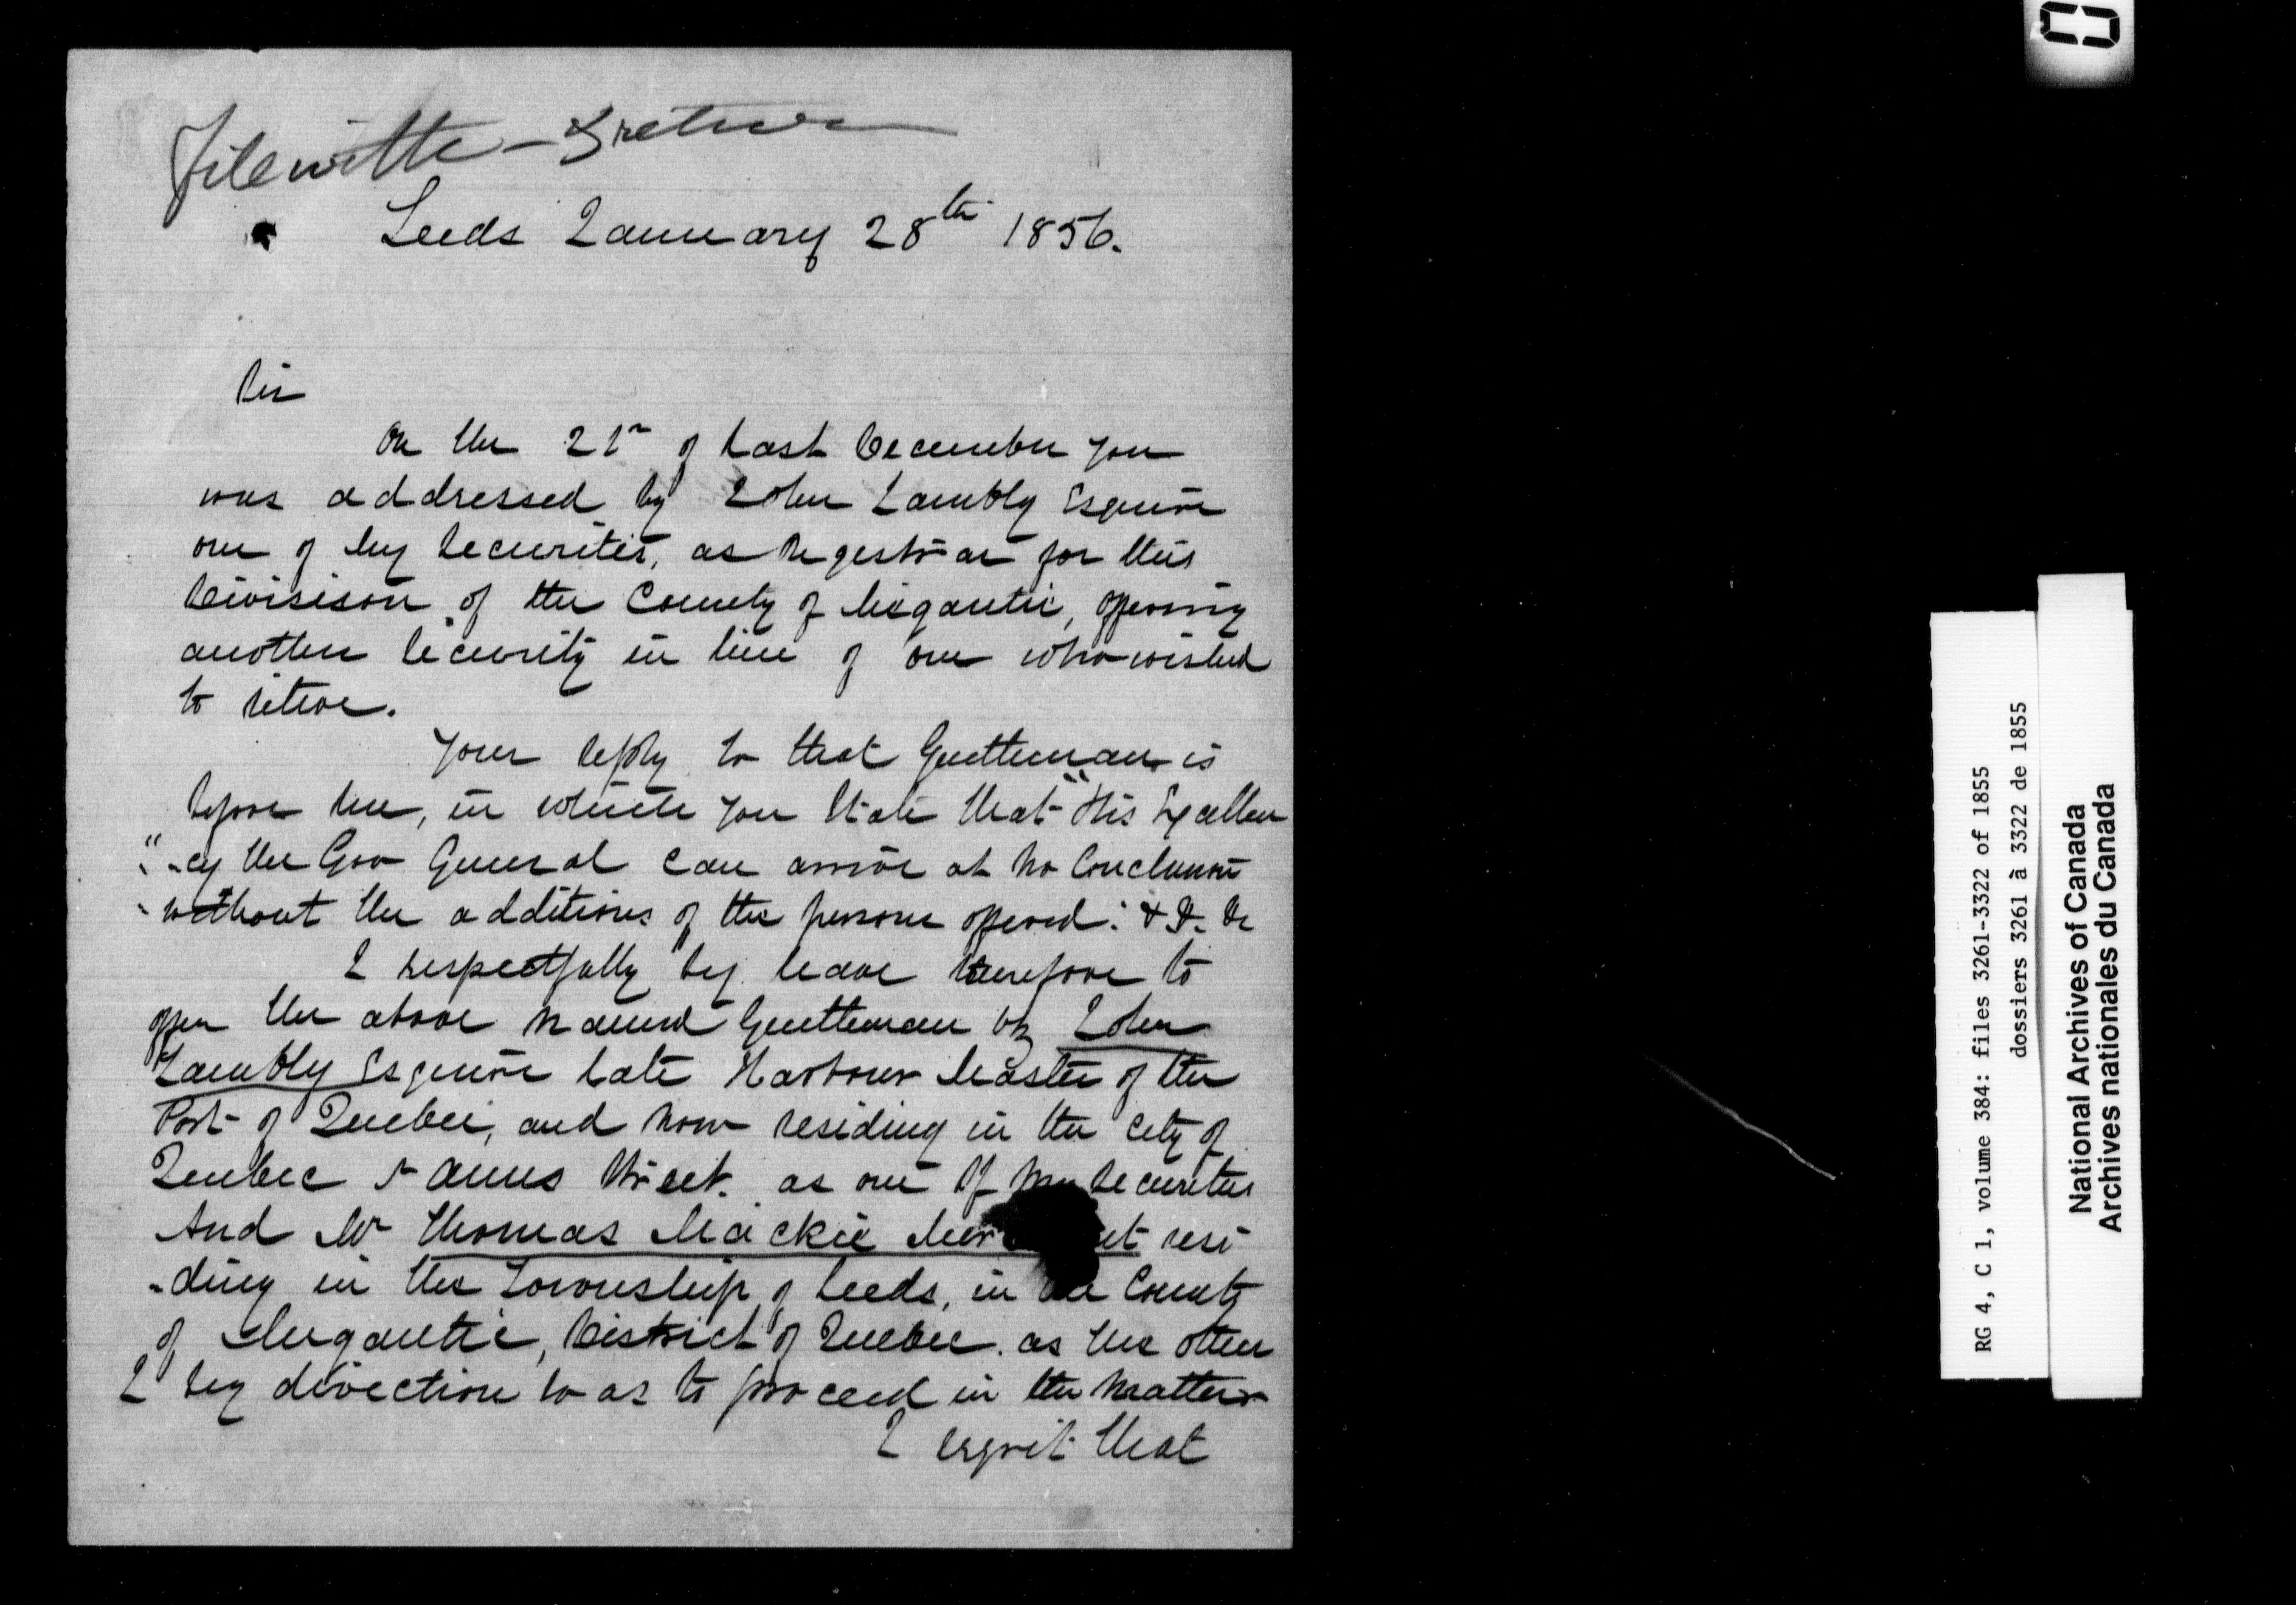 File with
Leeds January 28th 1856.
Sir
On the 21st of last December you
was addressed by John Lambly Esquire
one of my Securities, as Registrar for this
Divisison of the County of Megantic, offering
another Security in lieu of one who wished
to retire.
Your reply to that Gentleman is
before me, in which you State that "His Excellen
" -cy the Gov General can arrive at no Conclusion
" without the additions of the persons offered." &c. &c
I respectfully beg leave therefore to
offer the above named Gentleman viz John
Lambly Esquire late Harbour Master of the
Port of Quebec, and now residing in the City of
Quebec St Annes Street. as one of my Securities
And Mr Thomas Mackie resi
-ding in the Township of Leeds, in the County
of Megantic, District of Quebec. as the other
I beg direction so as to proceed in the matter
I regret that
RG 4, C 1, volume 384: files 3261-3322 of 1855
dossiers 3261 à 3322 de 1855
National Archives of Canada
Archives nationales du Canada